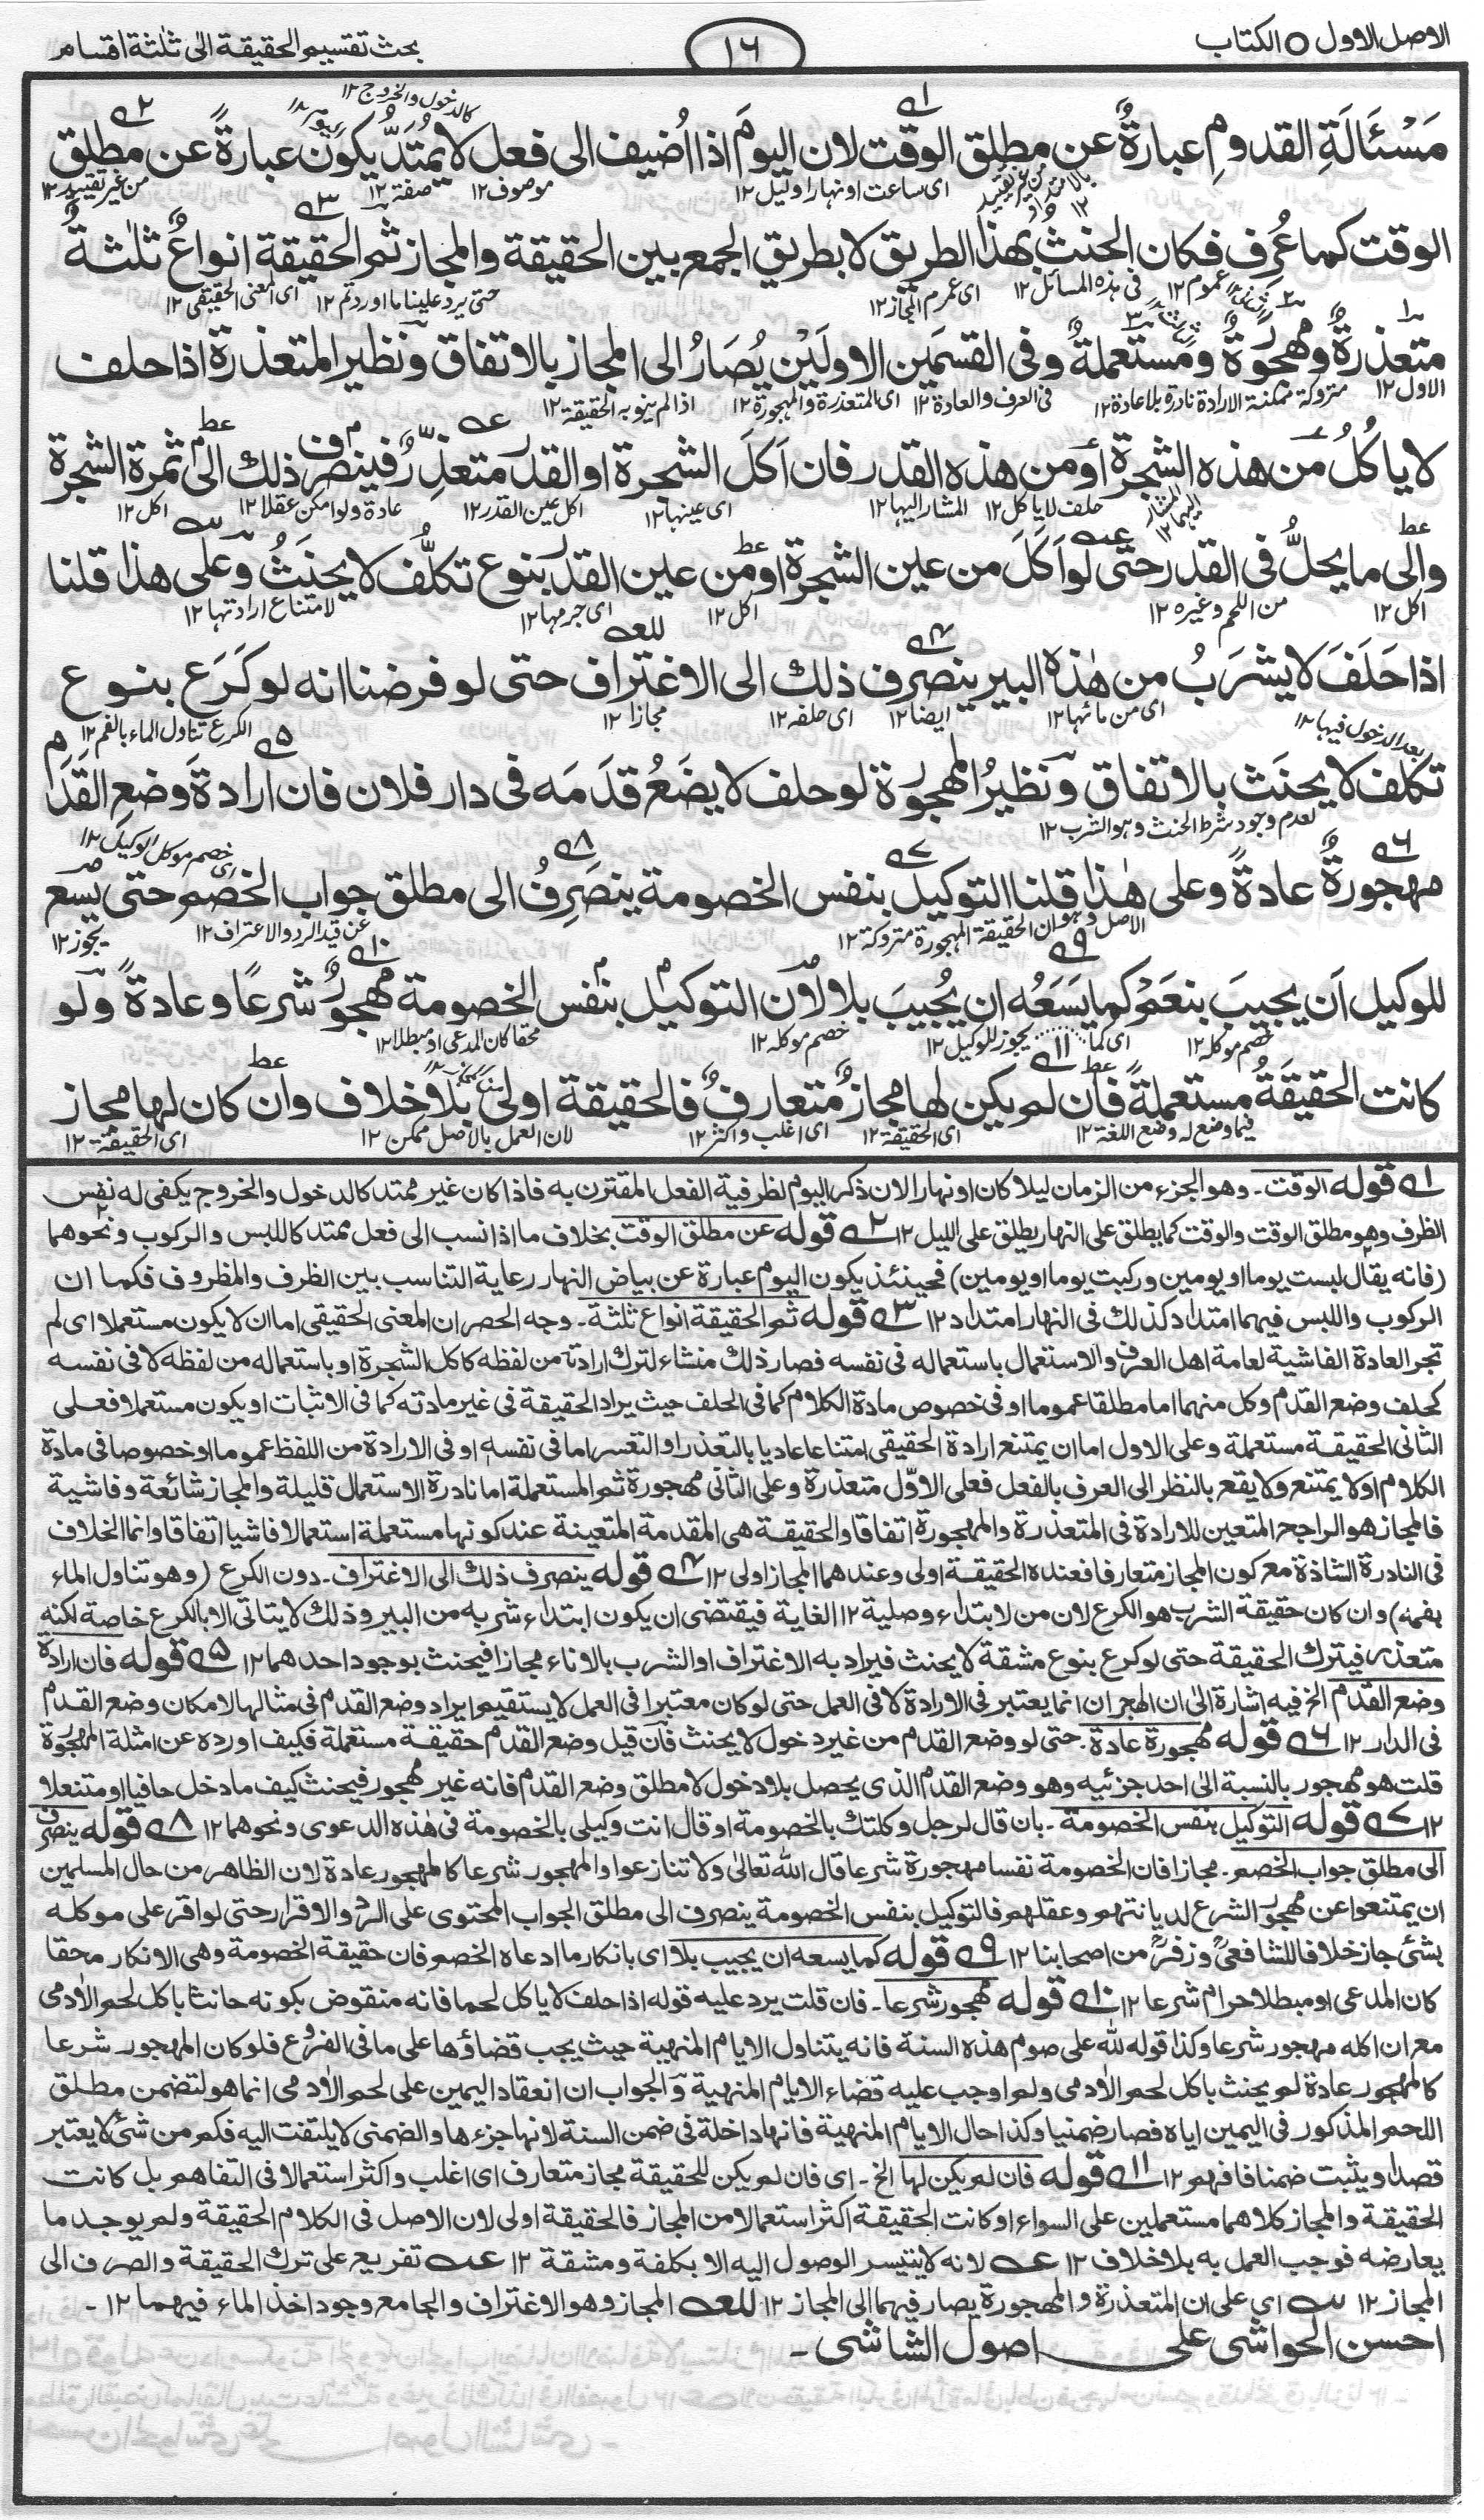 الاصل الاول ○ الكتاب
١٦
بحث تقسيم الحقيقة الى ثلثة اقسام
كالدخول والخروج ١٢
مَسْئَلَةِ القدومِ عبارةٌ عن مطلق الوقت لان اليومَ اذا اُضيف الى فعل لا يمتدّ يكون عبارةً عن مطلق
اى ساعت او نهارا وليل ١٢ موصوف ١٢ صفة ١٢ من غير تقييد ١٢
الوقت كما عُرف فكان الحنثُ بهذا الطريق لا بطريق الجمع بين الحقيقة والمجاز ثم الحقيقة انواعٌ ثلٰثةٌ
فى هذه المسائل ١٢ اى عموم المجاز ١٢ حتى يرد علينا ما اوردتم ١٢ اى المعنى الحقيقى ١٢
متعذرةٌ ومهجورةٌ ومستعملةٌ وفى القسمَين الاولَيْن يُصَارُ الى المجاز بالاتفاق ونظير المتعذرة اذا حلف
الاول ١٢ متروكة ممكنة الارادة نادرة بلا عادة ١٢ فى العرف والعادة ١٢ اى المتعذرة والمهجورة ١٢ اذا لم ينو به الحقيقة ١٢
لا ياكُلُ من هذه الشجرة اَو من هذه القدر فان اَكلَ الشجرة او القدر متعذِّرٌ فينصرف ذلك الى ثمرة الشجرة
حلف لا ياكل ١٢ المشار اليها ١٢ اى عينها ١٢ اكل عين القدر ١٢ عادة ولو امكن عقلا ١٢ اكل ١٢
والى ما يحلُّ فى القدر حتى لو اَكَلَ من عين الشجرة او من عين القدر بنوع تكلُّف لا يحنَثُ وعلى هذا قلنا
اكل ١٢ من اللحم وغيره ١٢ اكل ١٢ اى جرمها ١٢ لامتناع ارادتها ١٢
اذا حَلَفَ لا يشرَبُ من هٰذه البير ينصرف ذلك الى الاغتراف حتى لو فرضنا انه لو كَرَع بنوع
اى من مائها ١٢ ايضا ١٢ اى حلفه ١٢ مجازا ١٢ الكرع تناول الماء بالفم ١٢
بعد الدخول فيها ١٢
تكلف لا يحنَث بالاتفاق ونظيرُ المهجورة لو حلف لا يضَعُ قدَمَه فى دار فلان فان ارادةَ وضع القَدَم
لعدم وجود شرط الحنث وهو الشرب ١٢ اى خصم موكل الوكيل ١٢
مهجورةٌ عادةً وعلى هٰذا قلنا التوكيل بنفس الخصومة ينصَرِفُ الى مطلق جواب الخصم حتى يسع
الاصل وهو ان الحقيقة المهجورة متروكة ١٢ عن قيد الرد والاعتراف ١٢ يجوز ١٢
للوكيل اَن يجيبَ بنعَمْ كما يَسَعُه ان يُجيبَ بلا لان التوكيل بنفس الخصومة مهجورٌ شرعًا وعادةً ولو
خصم موكله ١٢ اى كما يجوز للوكيل ١٢ خصم موكله ١٢ محقا كان المدعى او مبطلا ١٢
كانت الحقيقَةُ مستعملةً فان لم يكن لها مجازٌ متعارفٌ فالحقيقة اولىٰ بلا خلاف وان كان لها مجاز
فيما وضع له وضع اللغة ١٢ اى الحقيقة ١٢ اى اغلب واكثر ١٢ لان العمل بالاصل ممكن ١٢ اى الحقيقة ١٢
١؎ قوله الوقت۔ وهو الجزء من الزمان ليلا كان او نهارا لان ذكر اليوم لظرفية الفعل المقترن به فاذا كان غير ممتد كالدخول والخروج يكفى له نفس
الظرف وهو مطلق الوقت والوقت كما يطلق على النهار يطلق على الليل ١٢ ٢؎ قوله عن مطلق الوقت بخلاف ما اذا نسب الى فعل ممتد كاللبس والركوب ونحوهما
(فانه يقال لبست يوما او يومين وركبت يوما او يومين) فحينئذ يكون اليوم عبارة عن بياض النهار رعاية التناسب بين الظرف والمظروف فكما ان
الركوب واللبس فيهما امتداد كذلك فى النهار امتداد ١٢ ٣؎ قوله ثم الحقيقة انواع ثلثة۔ وجه الحصر ان المعنى الحقيقى اما ان لا يكون مستعملا اى لم
تجر العادة الفاشية لعامة اهل العرف والاستعمال باستعماله فى نفسه فصار ذلك منشاء لترك ارادته من لفظه كاكل الشجرة او باستعماله من لفظه لا فى نفسه
كحلف وضع القدم وكل منهما اما مطلقا عموما او فى خصوص مادة الكلام كما فى الحلف حيث يراد الحقيقة فى غير مادته كما فى الاثبات او يكون مستعملا فعلى
الثانى الحقيقة مستعملة وعلى الاول اما ان يمتنع ارادة الحقيقى امتناعا عاديا بالتعذر او التعسر اما فى نفسه او فى الارادة من اللفظ عموما او خصوصا فى مادة
الكلام او لا يمتنع ولا يقع بالنظر الى العرف بالفعل فعلى الاوّل متعذرة وعلى الثانى مهجورة ثم المستعملة اما نادرة الاستعمال قليلة والمجاز شائعة وفاشية
فالمجاز هو الراجح المتعين للارادة فى المتعذرة والمهجورة اتفاقا والحقيقة هى المقدمة المتعينة عند كونها مستعملة استعمالا فاشيا اتفاقا وانما الخلاف
فى النادرة الشاذة مع كون المجاز متعارفا فعنده الحقيقة اولى وعندهما المجاز اولى ١٢ ٤؎ قوله ينصرف ذلك الى الاغتراف۔ دون الكرع (وهو تناول الماء
بفمه) وان كان حقيقة الشرب هو الكرع لان من لابتداء وصلية ١٢ الغاية فيقتضى ان يكون ابتداء شربه من البير وذلك لا يتاتى الا بالكرع خاصة لكنه
متعذر فيترك الحقيقة حتى لو كرع بنوع مشقة لا يحنث فيراد به الاغتراف او الشرب بالاناء مجازا فيحنث بوجود احدهما ١٢ ٥؎ قوله فان ارادة
وضع القدم الخ فيه اشارة الى ان الهجران انما يعتبر فى الارادة لا فى العمل حتى لو كان معتبرا فى العمل لا يستقيم ايراد وضع القدم فى مثالها لامكان وضع القدم
فى الدار ١٢ ٦؎ قوله مهجورة عادة۔ حتى لو وضع القدم من غير دخول لا يحنث فان قيل وضع القدم حقيقة مستعملة فكيف اورده عن امثلة المهجورة
قلت هو مهجور بالنسبة الى احد جزئيه وهو وضع القدم الذى يحصل بلا دخول لا مطلق وضع القدم فانه غير مهجور فيحنث كيف ما دخل حافيا او متنعلا
١٢ ٧؎ قوله التوكيل بنفس الخصومة۔ بان قال لرجل وكلتك بالخصومة او قال انت وكيلى بالخصومة فى هٰذه الدعوى ونحوهما ١٢ ٨؎ قوله ينصرف
الى مطلق جواب الخصم۔ مجازا فان الخصومة نفسا مهجورة شرعا قال الله تعالى ولا تنازعوا والمهجور شرعا كالمهجور عادة لان الظاهر من حال المسلمين
ان يمتنعوا عن مهجور الشرع لديانتهم وعقلهم فالتوكيل بنفس الخصومة ينصرف الى مطلق الجواب المحتوى على الرد والاقرار حتى لو اقر على موكله
بشئ جاز خلافا للشافعىؒ وزفرؒ من اصحابنا ١٢ ٩؎ قوله كما يسعه ان يجيب بلا اى بانكار ما ادعاه الخصم فان حقيقة الخصومة وهى الانكار محقا
كان المدعى او مبطلا حرام شرعا ١٢ ١٠؎ قوله مهجور شرعا۔ فان قلت يرد عليه قوله اذا حلف لا ياكل لحما فانه منقوض بكونه حانثا باكل لحم الاٰدمى
مع ان اكله مهجور شرعا وكذا قوله لله على صوم هذه السنة فانه يتناول الايام المنهية حيث يجب قضاؤها على ما فى الفروع فلو كان المهجور شرعا
كالمهجور عادة لم يحنث باكل لحم الاٰدمى ولم اوجب عليه قضاء الايام المنهية والجواب ان انعقاد اليمين على لحم الاٰدمى انما هو لتضمن مطلق
اللحم المذكور فى اليمين اياه فصار ضمنيا وكذا حال الايام المنهية فانها داخلة فى ضمن السنة لانها جزءها والضمنى لا يلتفت اليه فكم من شئ لا يعتبر
قصدا ويثبت ضمنا فافهم ١٢ ١١؎ قوله فان لم يكن لها الخ۔ اى فان لم يكن للحقيقة مجاز متعارف اى اغلب واكثر استعمالا فى التفاهم بل كانت
الحقيقة والمجاز كلاهما مستعملين على السواء او كانت الحقيقة اكثر استعمالا من المجاز فالحقيقة اولى لان الاصل فى الكلام الحقيقة ولم يوجد ما
يعارضه فوجب العمل به بلا خلاف ١٢ عـه لانه لا يتيسر الوصول اليه الا بكلفة ومشقة ١٢ عـه تفريع على ترك الحقيقة والصرف الى
المجاز ١٢ سـه اى على ان المتعذرة والمهجورة يصار فيهما الى المجاز ١٢ للعه المجاز وهو الاغتراف والجامع وجود اخذ الماء فيهما ١٢۔
احسن الحواشى على اصول الشاشى۔